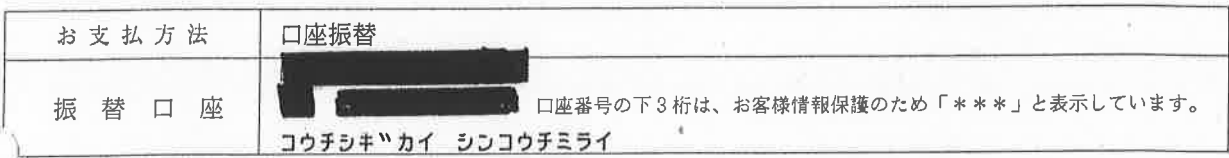 お支払方法 口座振替
振替口座 口座番号の下3桁は、お客様情報保護のため「＊＊＊」と表示しています。
コウチシギカイ シンコウチミライ